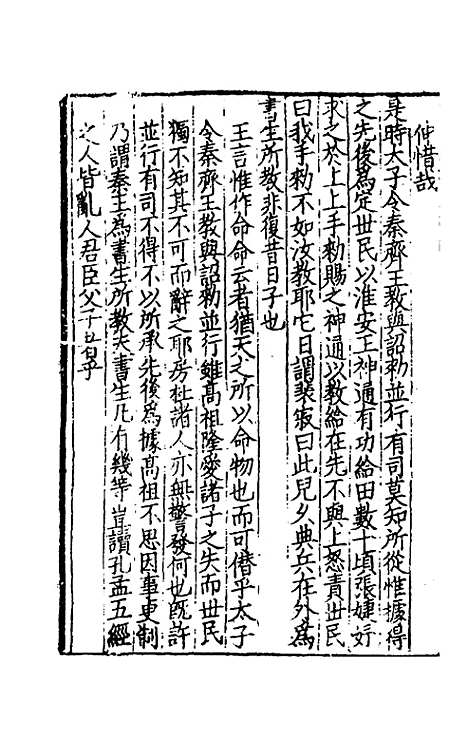 仲惜哉
是時太子令秦齊王教與詔勑並行有司莫知所從惟據得
之先後為定世民以淮安王神通有功給田數十頃張婕妤
求之於上上手勑賜之神通以教給在先不與上怒責世民
曰我手勑不如汝教耶它日謂裴寂曰此兒乆典兵在外為
書生所教非復昔日子也
王言惟作命命云者猶天之所以命物也而可僭乎太子
令秦齊王教與詔勑並行雖髙祖隆愛諸子之失而世民
獨不知其不可而辭之耶房杜諸人亦無警發何也既許
並行有司不得不以所承先後為據髙祖不思因事更制
乃謂秦王為書生所教夫書生凡有幾等豈讀孔孟五經
之人皆亂人君臣父子